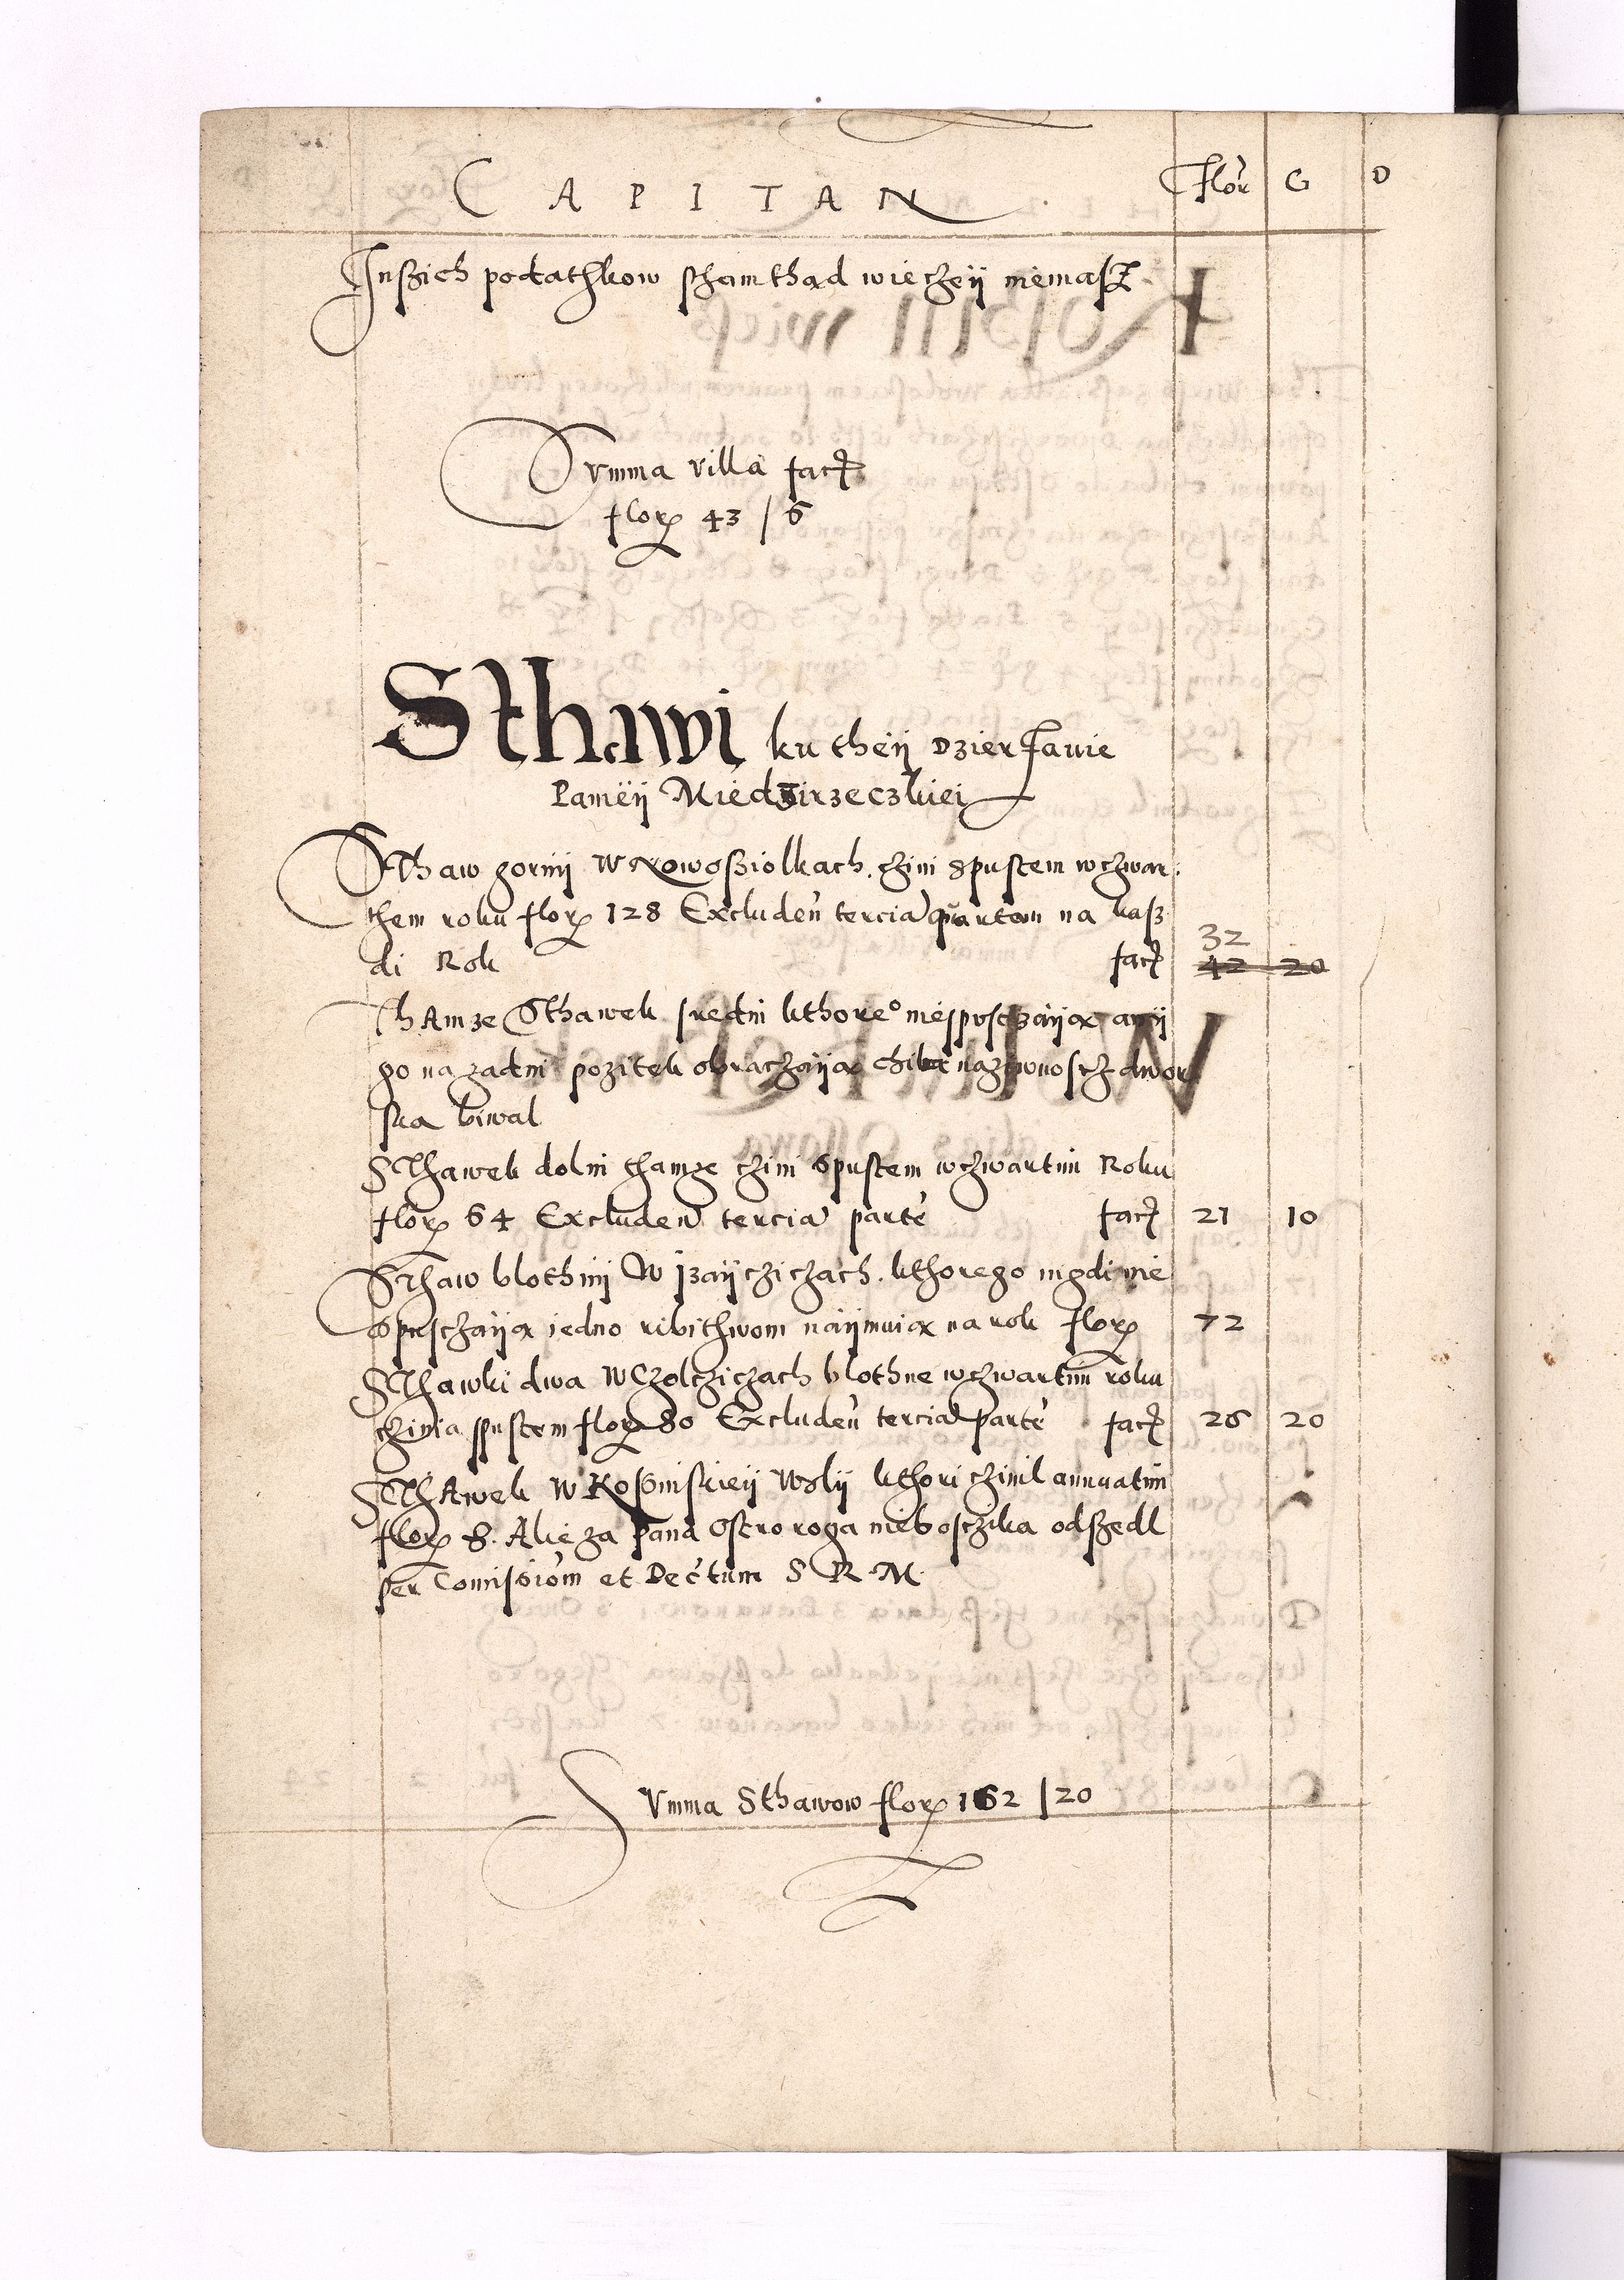 CAPITAN Flor G D
Inßich podathkow sthamthąd wieczeÿ niemasz
Summa villa facit
flor 43 / 6
Sthawi ku theÿ Dzierżawie
Panieÿ Miedzirzeczkiei
Sthaw gorniÿ W Nowoßiolkach. czini spustem w czwar
them roku flor 128 Excluden tercia quartam na kasz
di Rok facit 32
42 20
Thamze Sthawek sredni kthore° niespuszczaÿą aniÿ
go na zadni pozitek obraczaÿą chiba na zÿwnoscz dwor
ską biwal
Sthawek dolni thamze czini spustem w czwartim Roku
flor 64 Excluden tercia parte facit 21 10
Sthaw blothniÿ W Izaÿcziczach. kthorego nigdi nie
spusczaÿą iedno ribithwom naÿmuią na rok flor 72
Sthawki dwa W Czolcziczach blothne w czwartim roku
czinią spustem flor 80 Excluden tercia parte facit 26 20
Sthawek W Rosbniskieÿ Wslÿ kthori czinil annuatim
flor 8. Alie za pana Ostroroga niebosczika odszedl
per Comissiom et Dectum S R M
Summa Sthawow flor 162 / 20